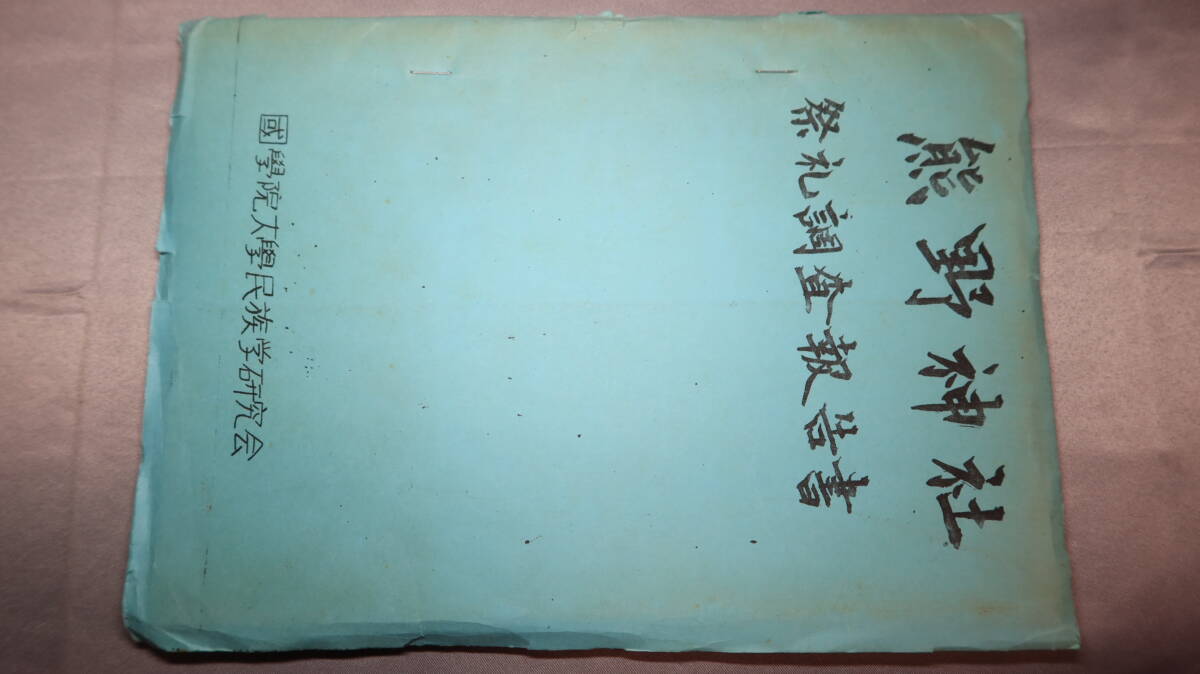 熊野神社
祭礼調査報告書
國學院大學民族学研究会